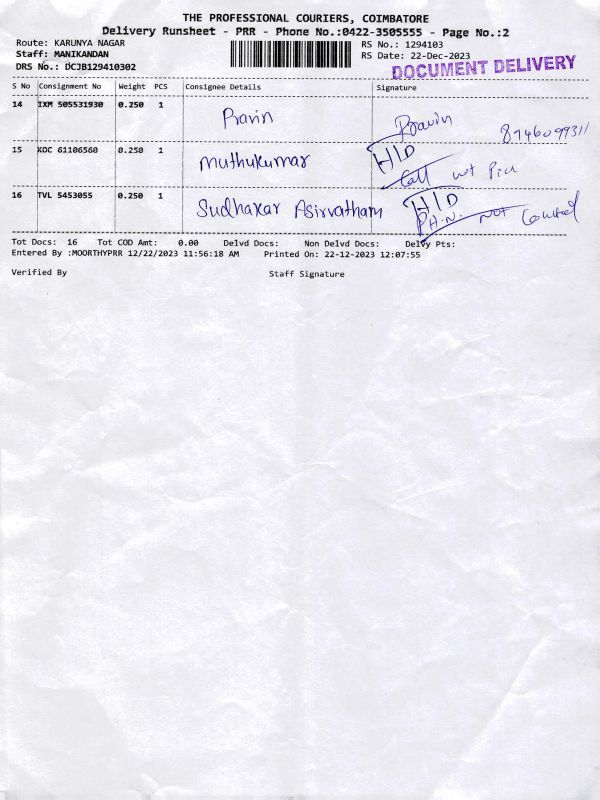 THE PROFESSIONAL COURIERS, COIMBATORE
Delivery Runsheet - PRR - Phone No.:0422-3505555 - Page No.:2
Route: KARUNYA NAGAR RS No.: 1294103
Staff: MANIKANDAN RS Date: 22-Dec-2023
DRS No.: DCJB129410302 DOCUMENT DELIVERY
S No Consignment No Weight PCS Consignee Details Signature
14 IXM 505531930 0.250 1 Pravin Pravin
15 KOC 61106560 0.250 1 Muthukumar H/D
Call not Pick
16 TVL 5453055 0.250 1 Sudhakar Asirvatham H/D
P.H.N. not
Tot Docs: 16 Tot COD Amt: 0.00 Delvd Docs: Non Delvd Docs: Delvy Pts:
Entered By :MOORTHYPRR 12/22/2023 11:56:18 AM Printed On: 22-12-2023 12:07:55
Verified By Staff Signature